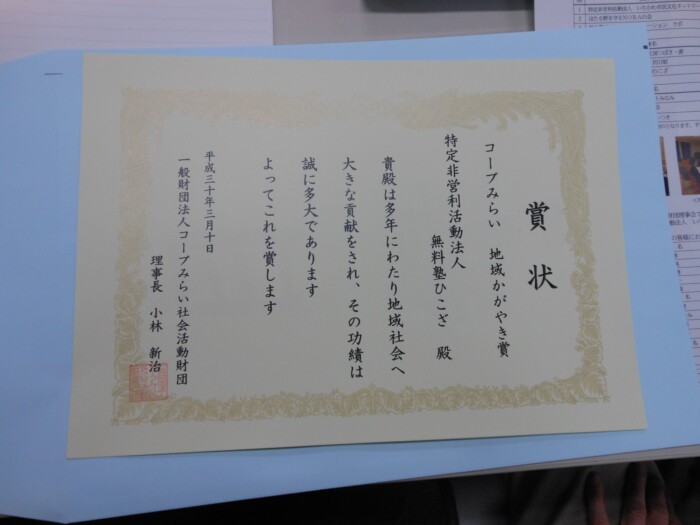 賞状
コープみらい 地域かがやき賞
特定非営利活動法人
無料塾ひこざ 殿
貴殿は多年にわたり地域社会へ
大きな貢献をされ、その功績は
誠に多大であります
よってこれを賞します
平成三十年三月十日
一般財団法人コープみらい社会活動財団
理事長 小林 新治